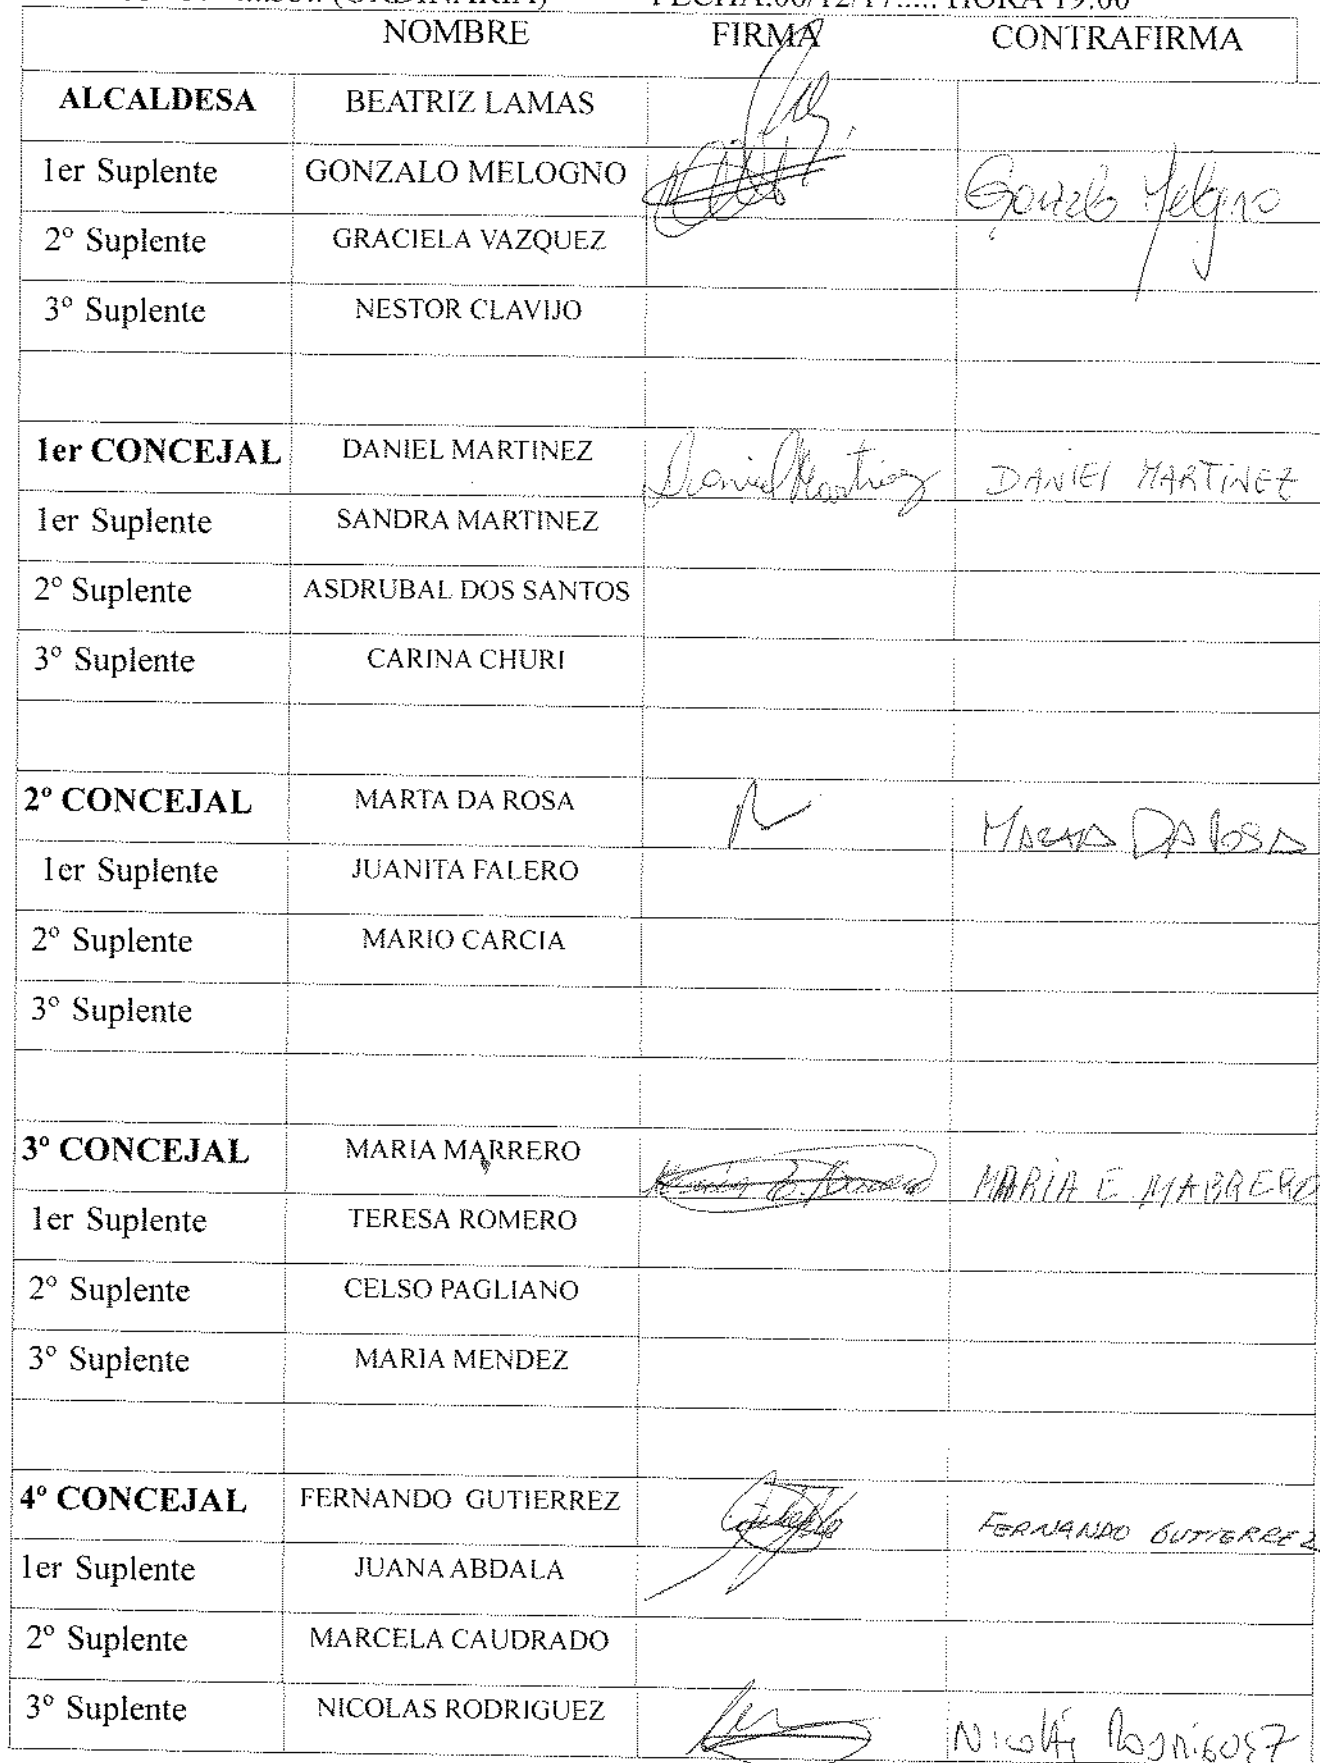 (ORDINARIA) FECHA:06/12/17..... HORA 19:00
NOMBRE FIRMA CONTRAFIRMA
ALCALDESA BEATRIZ LAMAS
1er Suplente GONZALO MELOGNO Gonzalo Melogno
2º Suplente GRACIELA VAZQUEZ
3º Suplente NESTOR CLAVIJO
1er CONCEJAL DANIEL MARTINEZ Daniel Martinez DANIEL MARTINEZ
1er Suplente SANDRA MARTINEZ
2º Suplente ASDRUBAL DOS SANTOS
3º Suplente CARINA CHURI
2º CONCEJAL MARTA DA ROSA MARTA DA ROSA
1er Suplente JUANITA FALERO
2º Suplente MARIO CARCIA
3º Suplente
3º CONCEJAL MARIA MARRERO María E. Marrero MARIA E MARRERO
1er Suplente TERESA ROMERO
2º Suplente CELSO PAGLIANO
3º Suplente MARIA MENDEZ
4º CONCEJAL FERNANDO GUTIERREZ FERNANDO GUTIERREZ
1er Suplente JUANA ABDALA
2º Suplente MARCELA CAUDRADO
3º Suplente NICOLAS RODRIGUEZ Nicolás Rodriguez